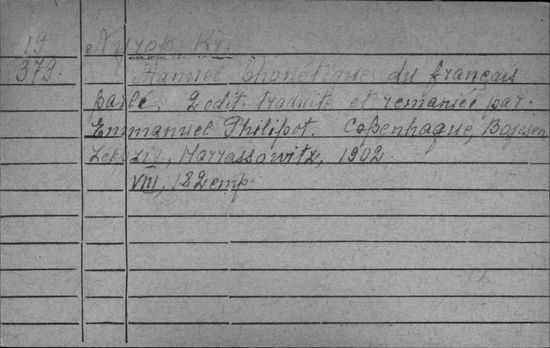 19 Nyrop, Kr.
379 Manuel phonetique du français
parlé. 2 edit. traduite et remaniée par
Emmanuel Philipot. Copenhague, Bojesen,
Leipzig, Harrassowitz, 1902
VIII, 182 стр.